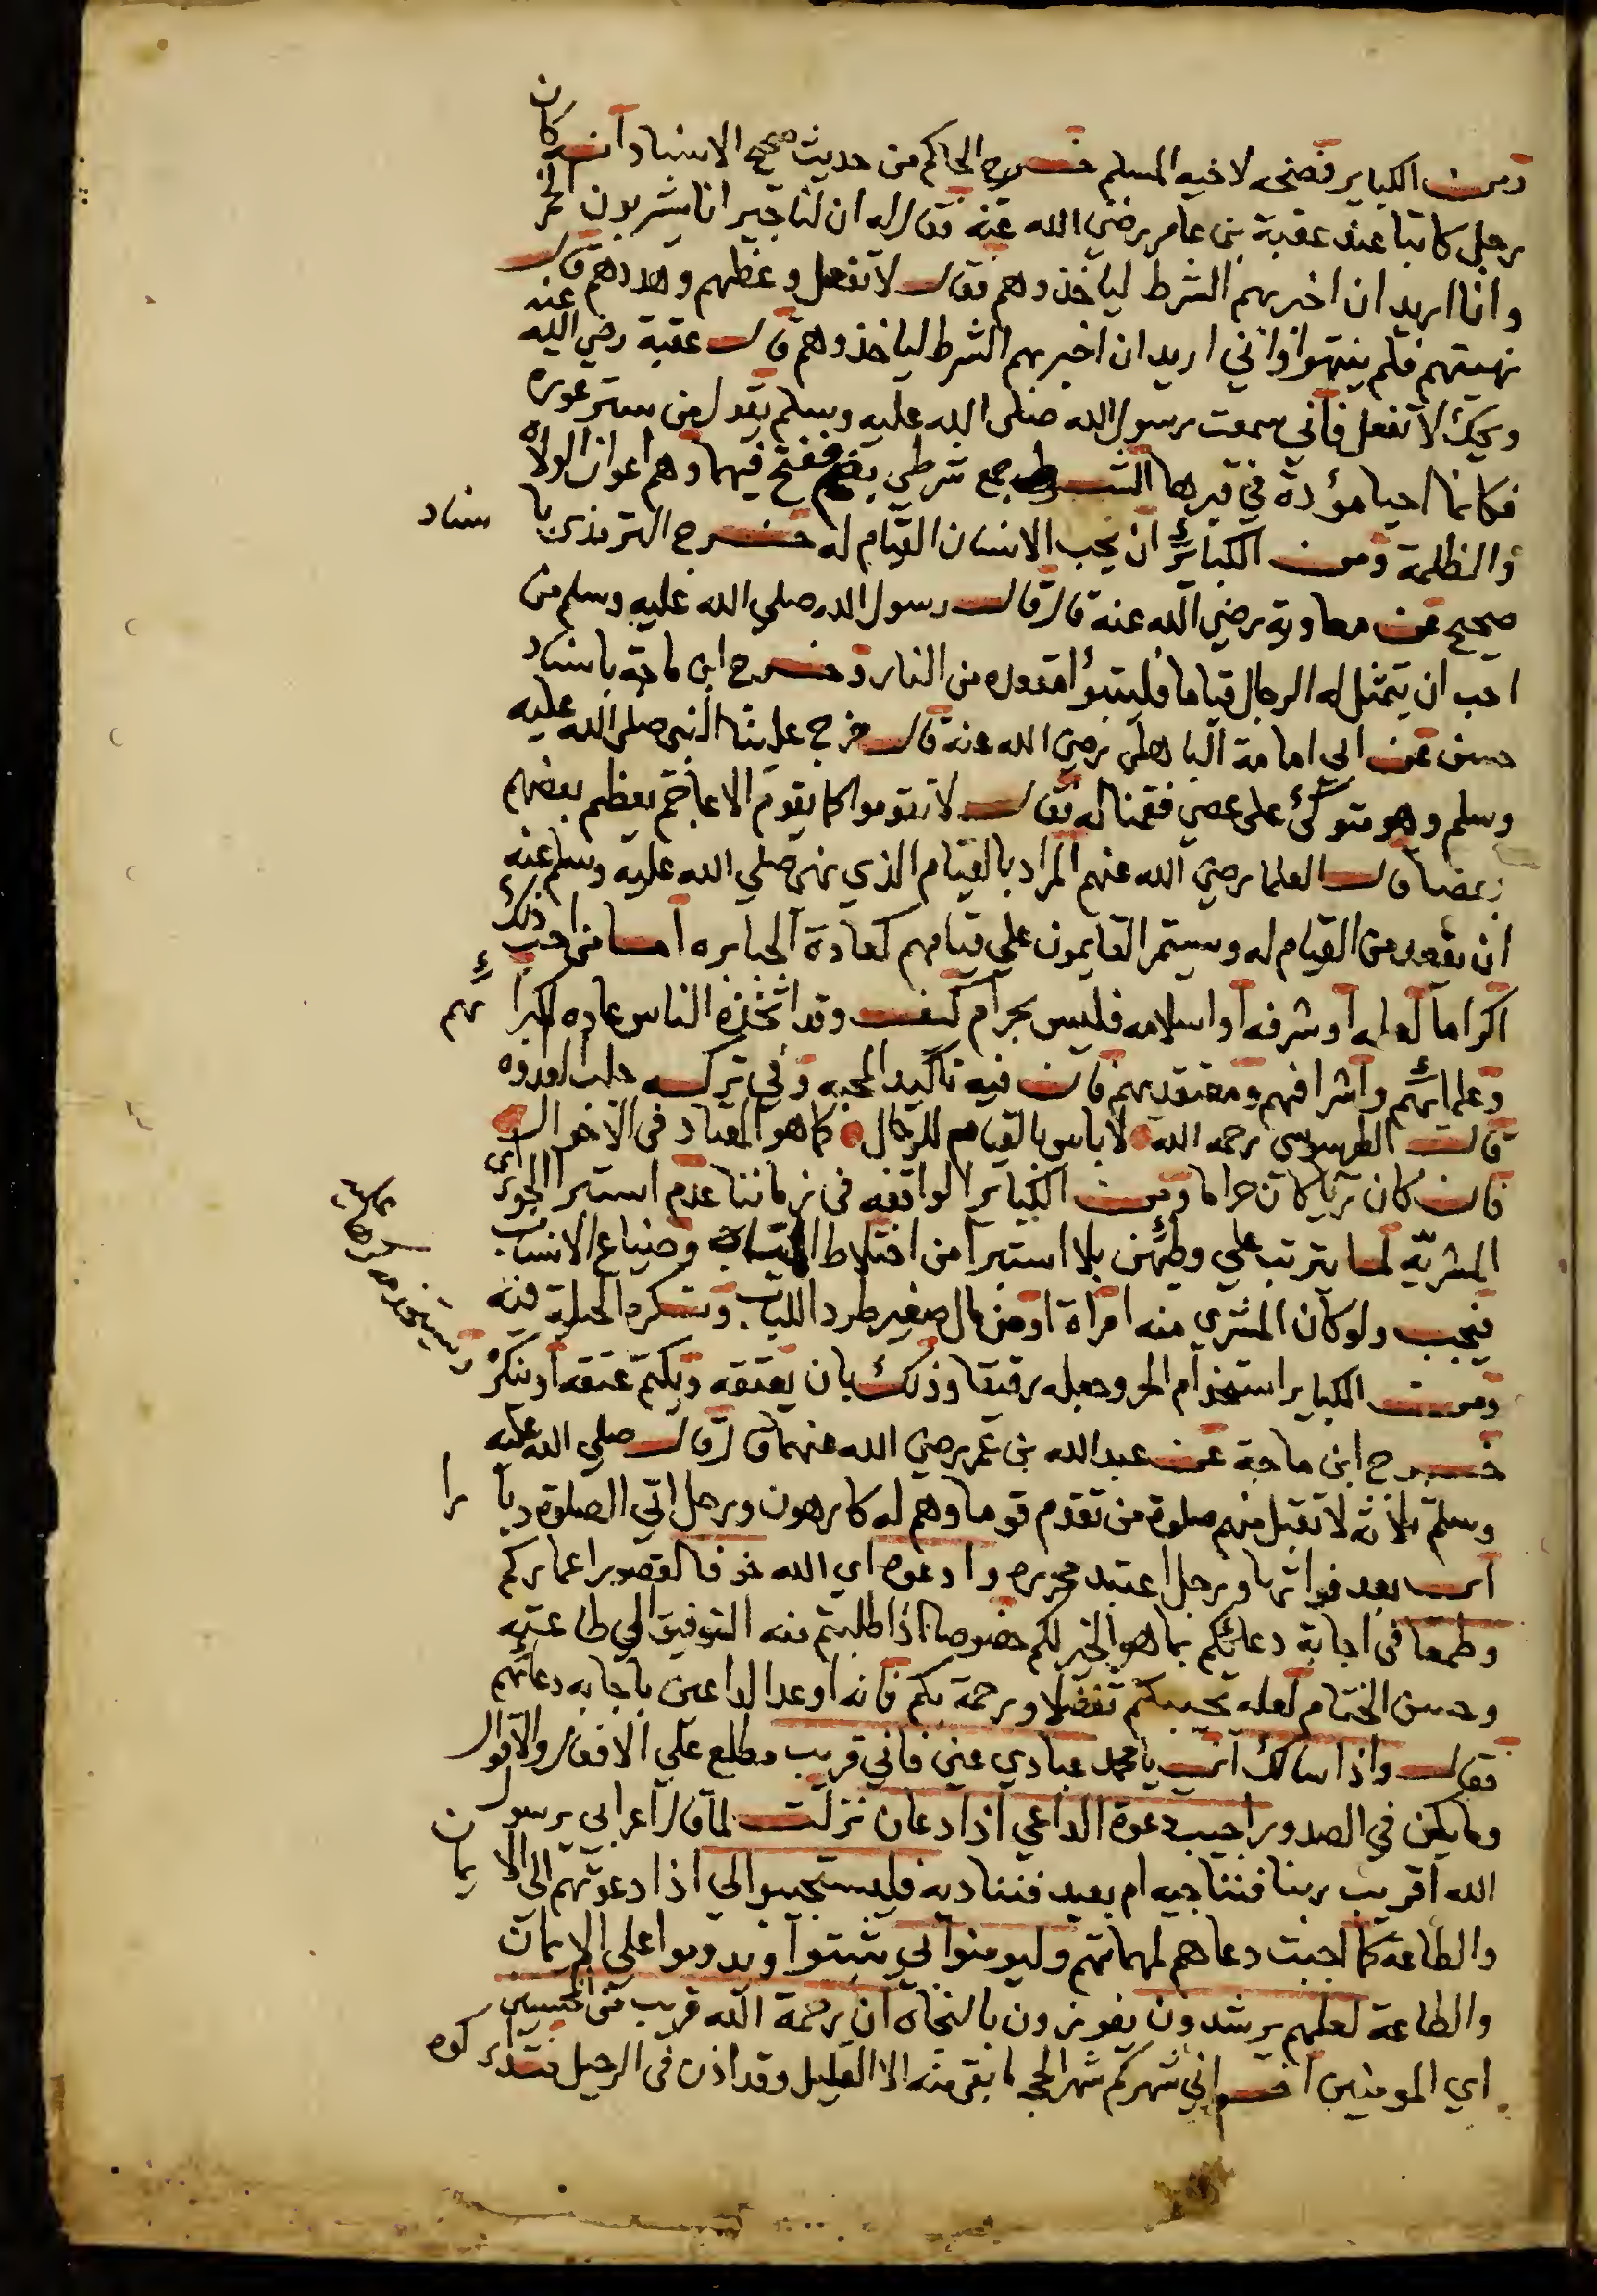 ومن الكباير فضحه لاخيه المسلم خرج الحاكم من حديث صحيح الاسناد انه كان
رجل كاتبا عند عقبة بن عامر رضي الله عنه فقال له ان لنا جيرانا يشربون الخمر
وانا اريد ان اخبر بهم الشرط لياخذوهم فقال لا تفعل وعظهم وهددهم قال
نهيتهم فلم ينتهوا واني اريد ان اخبر بهم الشرط لياخذوهم قال عقبة رضي الله عنه
ويحك لا تفعل فاني سمعت رسول الله صلى الله عليه وسلم يقول من ستر عوره
فكانما احيا موؤدة في قبرها الشرط جمع شرطي بضم ففتح فيهما وهم اعوان الولاة
والظلمة ومن الكبائر ان يحب الانسان القيام له خرج الترمذي باسناد
صحيح عن معاوية رضي الله عنه قال قال رسول الله صلي الله عليه وسلم من
احب ان يتمثل له الرجال قياما فليتبوأ مقعده من النار وخرج ابن ماجة باسناد
حسن عن ابي امامة الباهلي رضي الله عنه قال خرج علينا النبي صلى الله عليه
وسلم وهو متوكئ على عصى فقمنا له فقال لا تقوموا كما يقوم الاعاجم يعظم بعضهم
بعضا قال العلما رضي الله عنهم المراد بالقيام الذي نهى صلي الله عليه وسلم عنه
ان يقعد من القيام له ويستمر القايمون علي قيامهم كعادة الجبابره اما من احب ذلك
اكراما لعلمه او شرفه او اسلامه فليس بحرام كيف وقد اتخذه الناس عاده لكبرائهم
وعلمائهم واشرافهم ومعتقديهم فان فيه تاكيد المحبه وفي تركه جلب العدوه
قال الطرسوسي رحمه الله لا باس بالقيام للرجال كما هو المعتاد في الاخوال
فان كان تريا كان حراما ومن الكباير الواقعه في زماننا عدم استبرا الجوارى
المشريّه لما يترتب علي وطئهن بلا استبرا من اختلاط المياه وضياع الانساب
فيجب ولو كان المشري منه امراة او من مال صغير طرد اللباب وتكره الحيلة فيه
ومن الكباير استخدام الحر وجعله رقيقا وذلك بان يعتقه ويكتم عتقه او ينكره
ويستخدمه كرها
خرج ابن ماجة عن عبد الله بن عمر رضي الله عنهما قال قال صلي الله عليه
وسلم ثلاثه لا تقبل منهم صلوة من تقدم قوما وهم له كارهون ورجل اتي الصلوة دبارا
اي بعد فواتها ورجل اعتبد محرره وادعوه اي الله خوفا لقصور اعماركم
وطمعا في اجابة دعائكم بما هو الخير لكم خصوصا اذا طلبتم منه التوفيق الي طاعته
وحسن الختام لعله يجيبكم تفضلا ورحمة بكم فانه اوعد الداعين باجابه دعائهم
فقال واذا سالك اي يا محمد عبادي عني فاني قريب مطلع علي الافعال والاقوال
وما يكن في الصدور اجيب دعوة الداعي اذا دعان نزلت لما قال اعرابي يرسول
الله اقريب ربنا فنناجيه ام بعيد فنناديه فليستجيبوا لي اذا دعوتهم الى الايمان
والطاعة كما اجبت دعاهم لمهماتهم وليومنوا بي يثبتوا ويدوموا على الايمان
والطاعة لعلهم يرشدون يفوزون بالنجاة ان رحمة الله قريب من المحسنين
اي المومنين اخواني شهركم شهر الحجه ما بقي منه الا القليل وقد اذن في الرحيل فتداركوه